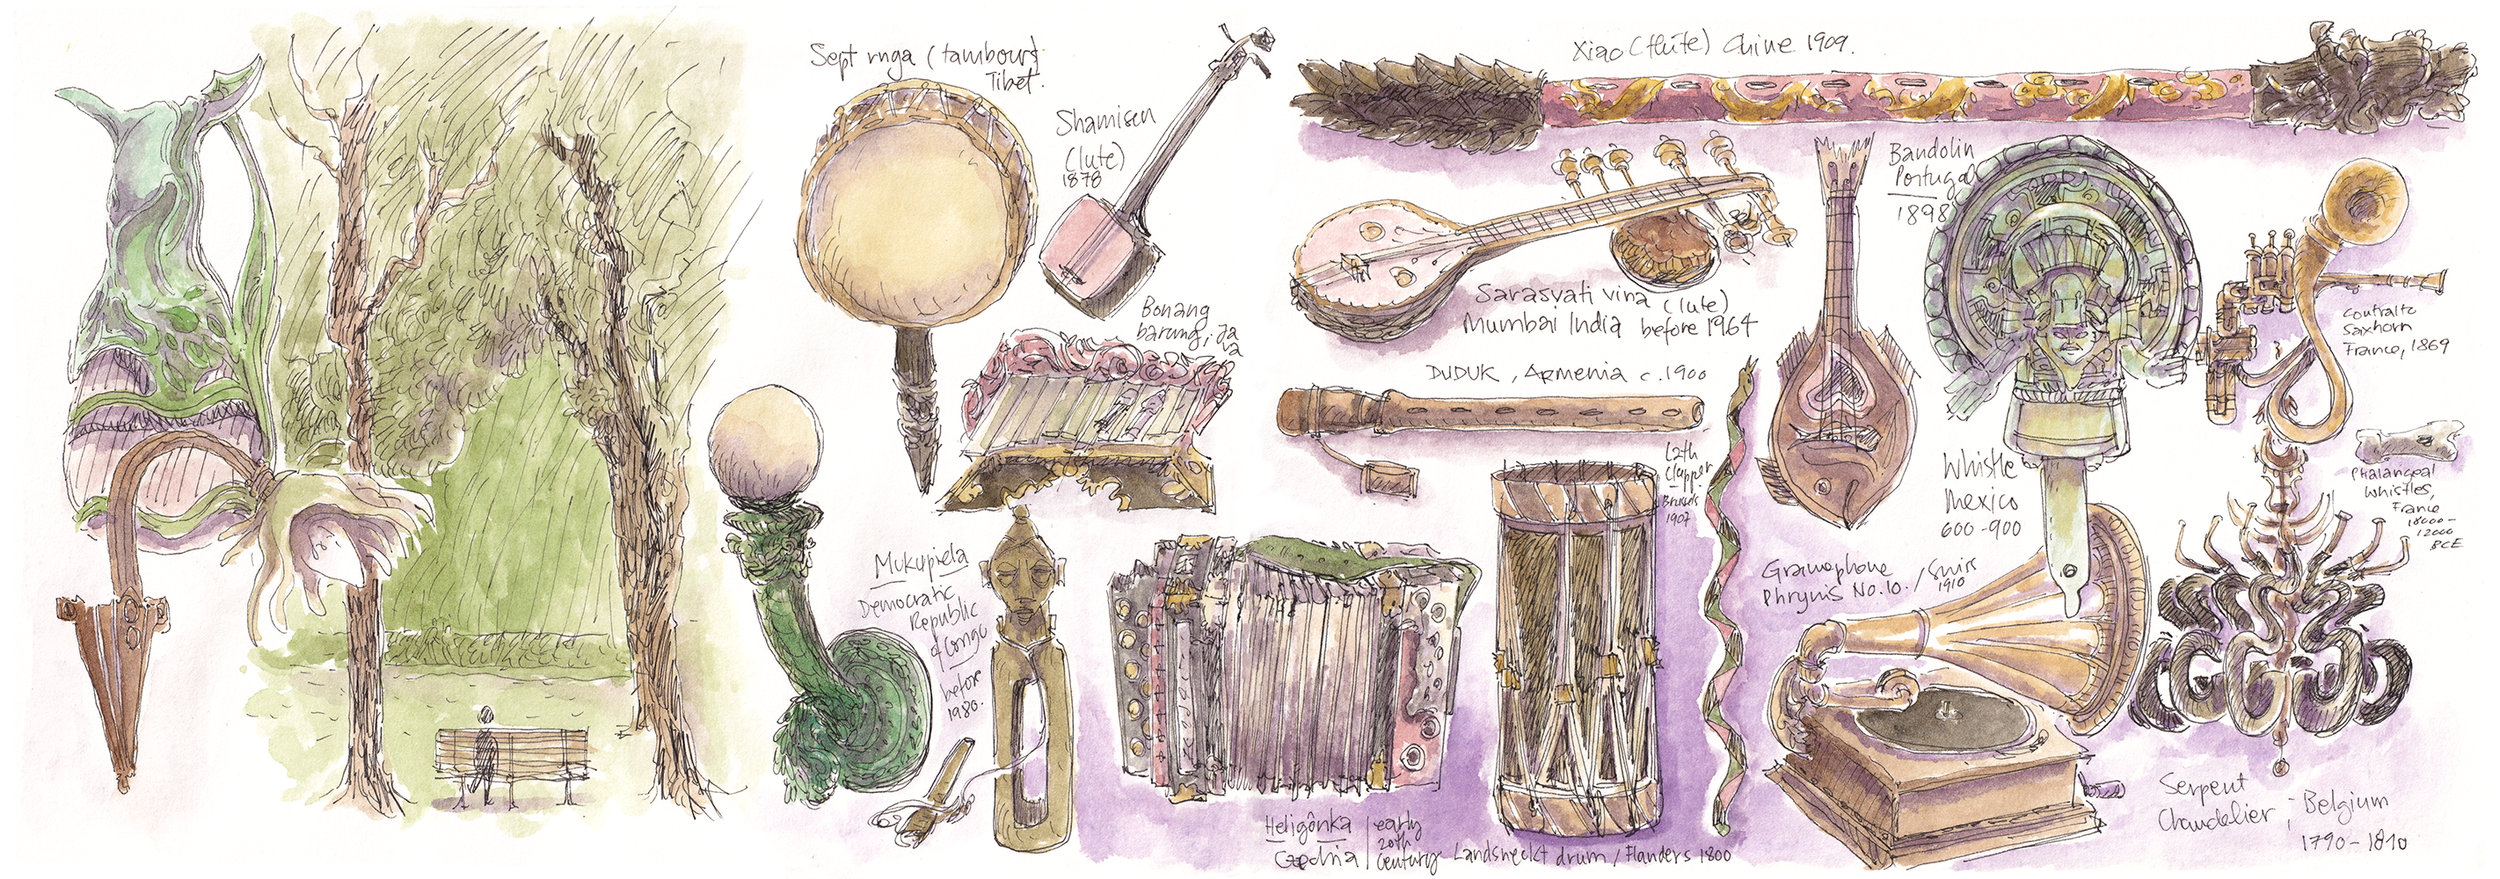 Sept rnga (tambour)
Tibet.
Shamisen
(lute)
1878
Bonang
barung, Ja
va
Xiao (flûte) Chine 1909.
Sarasvati vina (lute)
Mumbai India before 1964
DUDUK, ARMENIA c. 1900
Bandolin
Portugal
1898
contralto
Saxhorn
France, 1869
Lath
Clapper
Brussels
1907
Whistle
Mexico
600-900
Phalangeal
whistles,
France
18000-
12000
BCE
Mukupiela
Democratic
Republic
of Congo
before
1980.
Gramophone
Phrynis No. 10. / Suiss
1910
Heligônka
Czechia
early
20th
century
Landsneckt drum / Flanders 1800
Serpent
Chandelier ; Belgium
1790-1810